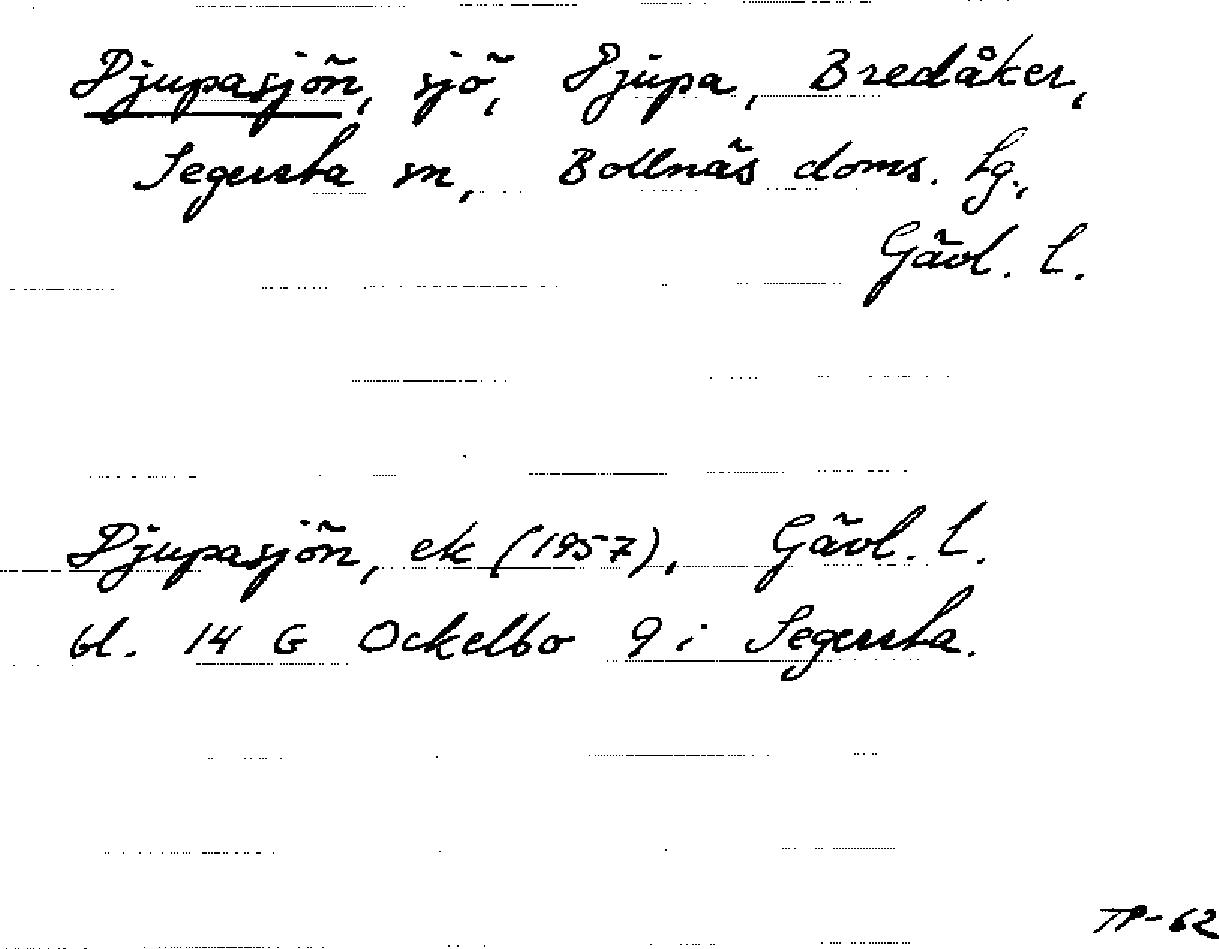 Djupasjön, sjö, Djupa, Bredåker,
Segersta sn, Bollnäs doms. tg.,
Gävl. l.
Djupasjön, ek (1957), Gävl. l.
bl. 14 G Ockelbo 9 i Segersta.
TP-62